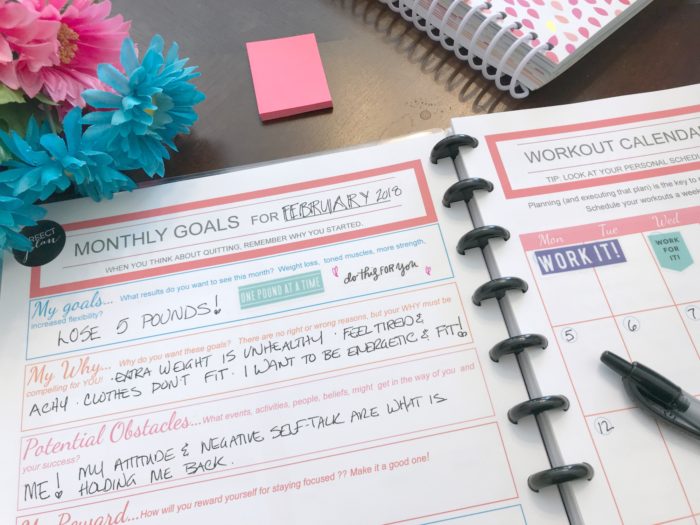 MONTHLY GOALS FOR FEBRUARY 2018
WHEN YOU THINK ABOUT QUITTING, REMEMBER WHY YOU STARTED.
My goals... What results do you want to see this month? Weight loss, toned muscles, more strength,
increased flexibility?
ONE POUND AT A TIME
do this for YOU
LOSE 5 POUNDS!
My Why... Why do you want these goals? There are no right or wrong reasons, but your WHY must be
compelling for YOU!
· EXTRA WEIGHT IS UNHEALTHY · FEEL TIRED &
ACHY · CLOTHES DON'T FIT · I WANT TO BE ENERGETIC & FIT!
Potential Obstacles... What events, activities, people, beliefs, might get in the way of you and
your success?
ME! MY ATTITUDE & NEGATIVE SELF-TALK ARE WHAT IS
HOLDING ME BACK.
My Reward... How will you reward yourself for staying focused ?? Make it a good one!
plan
WORKOUT CALENDA
TIP: LOOK AT YOUR PERSONAL SCHEDU
Planning (and executing that plan) is the key to
Schedule your workouts a wee
Mon Tue Wed
WORK IT!
WORK
FOR
IT!
5 6 7
12